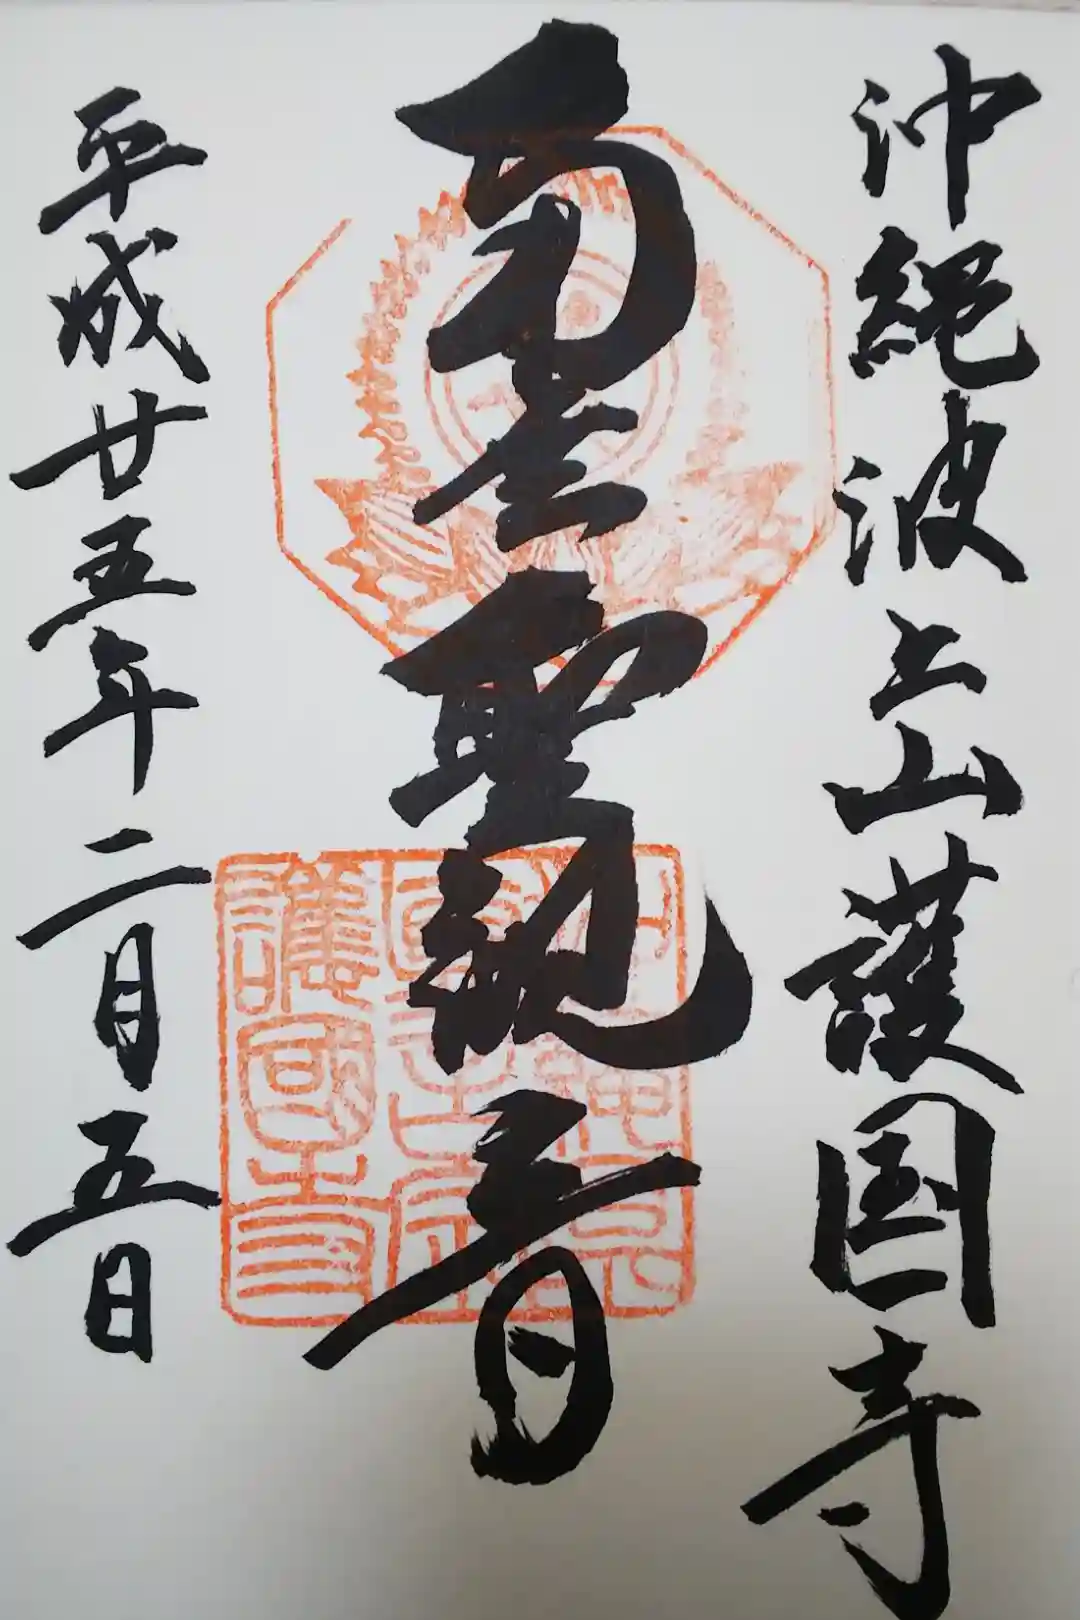 沖縄波上山護国寺
南无聖観音
平成廿五年二月五日
護國寺